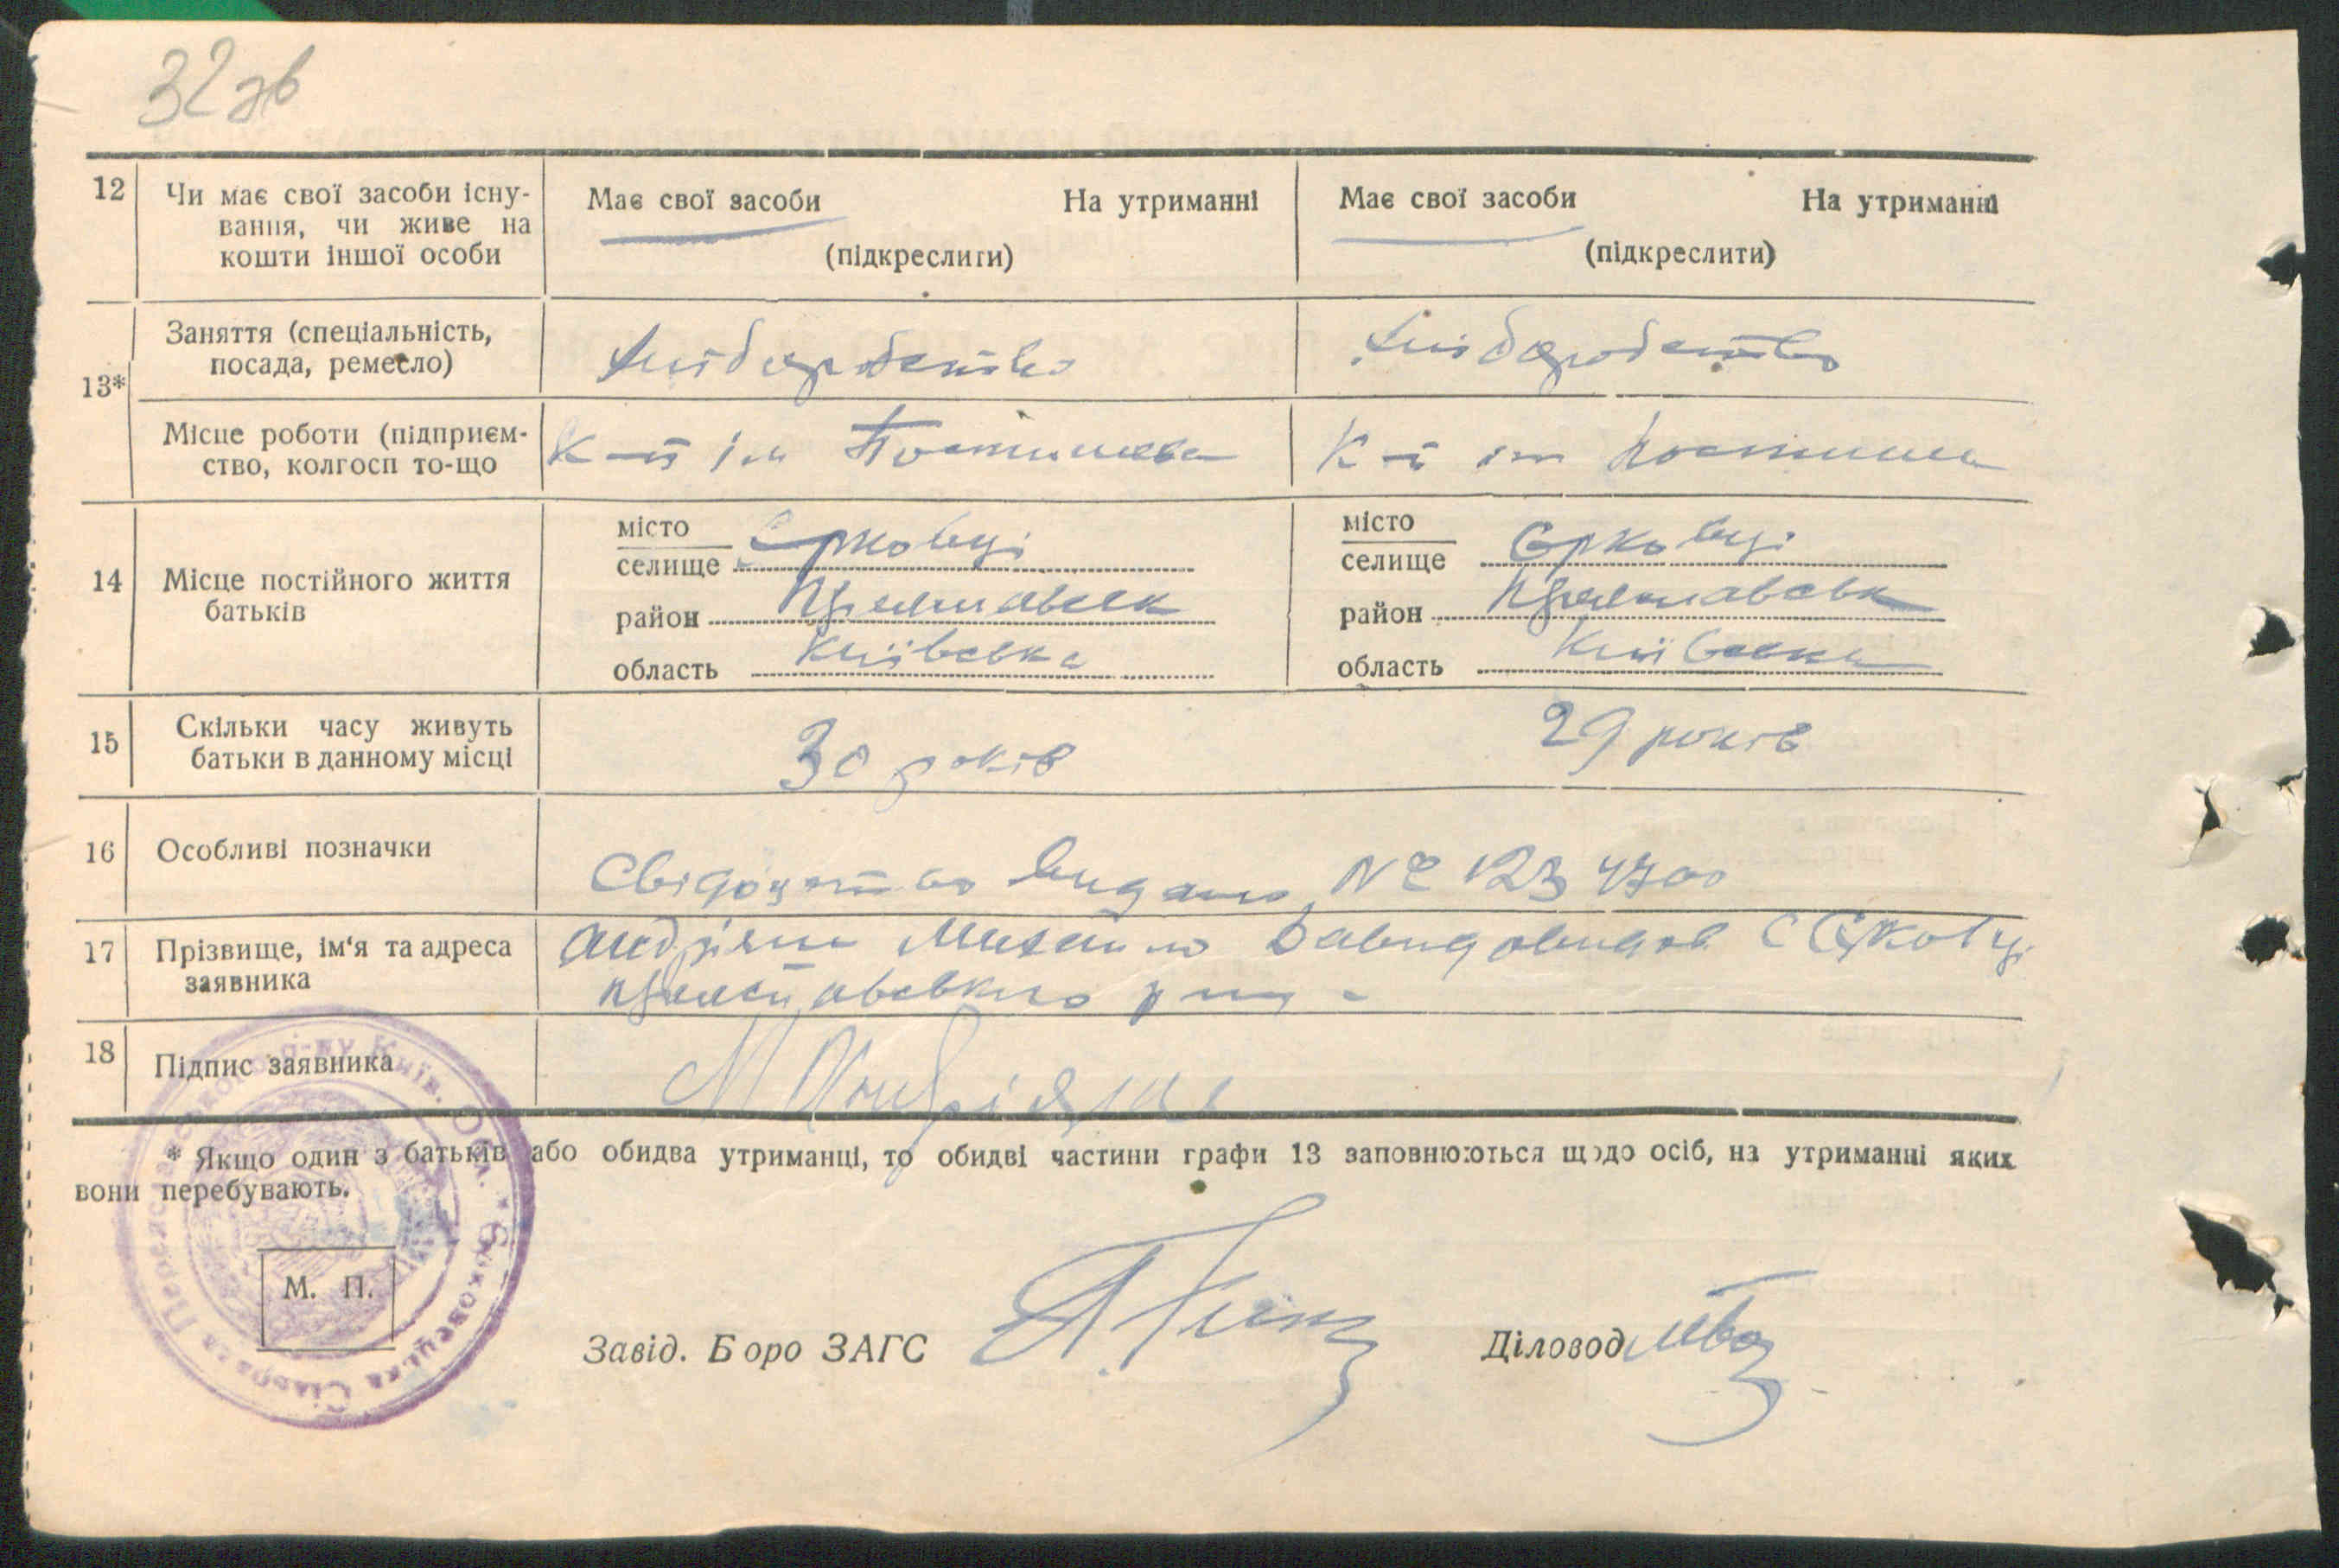 32 зв
12 Чи має свої засоби існу- Має свої засоби На утриманні Має свої засоби На утриманні
вання, чи живе на
кошти іншої особи (підкреслити) (підкреслити)
Заняття (спеціальність, хліборобство хліборобство
посада, ремесло)
13*
Місце роботи (підприєм- К-п ім Постишева К-п ім Постишева
ство, колгосп то-що
місто місто
селище Єрковці селище Єрковці
14 Місце постійного життя район район
батьків
область Київська область Київська
15 Скільки часу живуть 30 років 29 років
батьки в данному місці
16 Особливі позначки
Свідоцтво видано №
17 Прізвище, ім'я та адреса Андріяш Михайло Давидович с Єрковці
заявника
18 Підпис заявника М Андріяш
* Якщо один з батьків або обидва утриманці, то обидві частини графи 13 заповнюються щодо осіб, на утриманні яких
вони перебувають.
М. П.
Завід. Боро ЗАГС Діловод